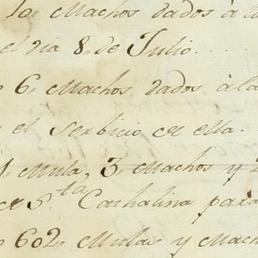 10 Machos dados á la
el dia 8, de Julio....
6, Machos dados, à la
el Serbicio de ella.
1, Mula, 3, Machos y 2
S.ta Cathalina para
602, Mulas y Mach